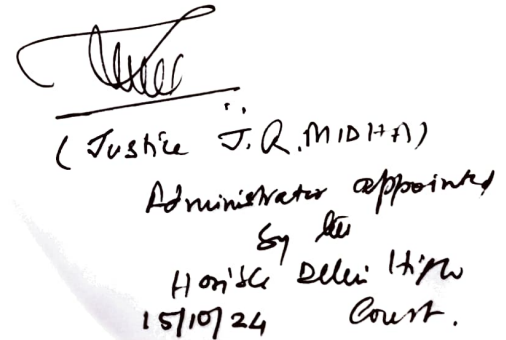 ( Justice J. R. MIDHA)
Administrator appointed
by the
Hon'ble Delhi High
15/10/24 Court.